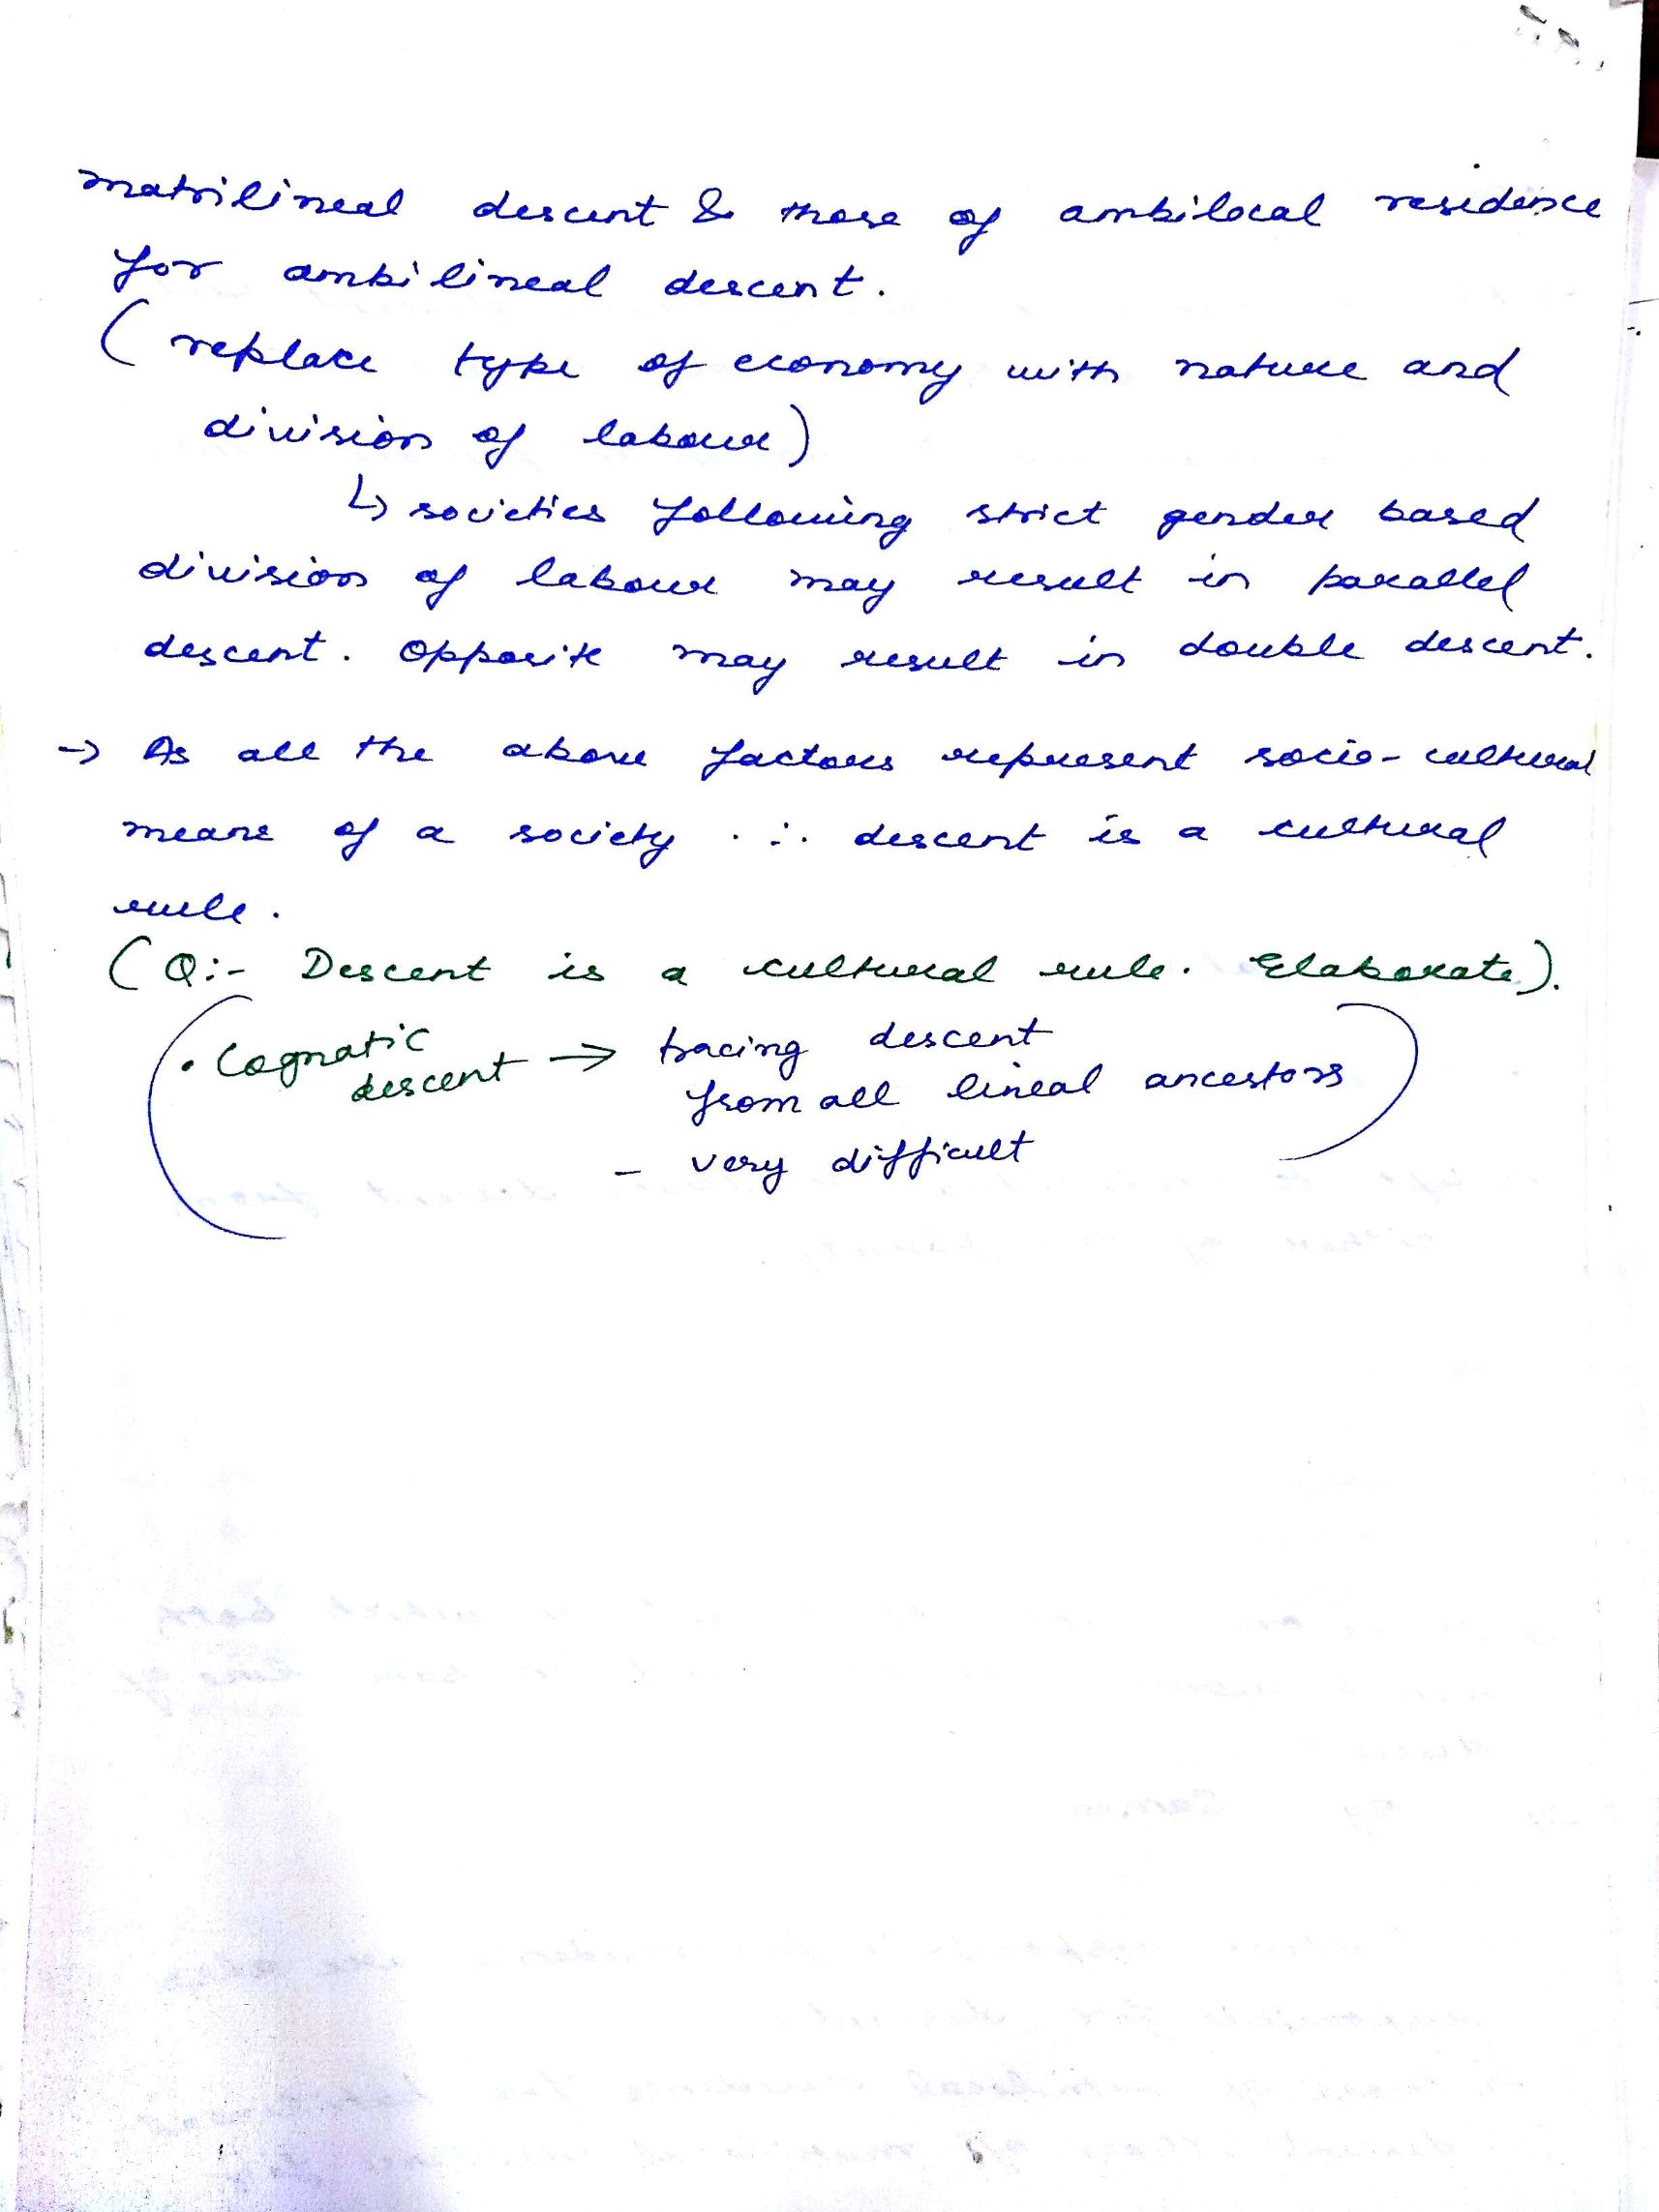 matrilineal descent & those of ambilocal residence
for ambilineal descent.
(replace type of economy with nature and
division of labour)
↳ societies following strict gender based
division of labour may result in parallel
descent. Opposite may result in double descent.
→ As all the above factors represent socio-cultural
means of a society. ∴ descent is a cultural
rule.
(Q:- Descent is a cultural rule. Elaborate).
• Cognatic descent → tracing descent
from all lineal ancestors
- very difficult